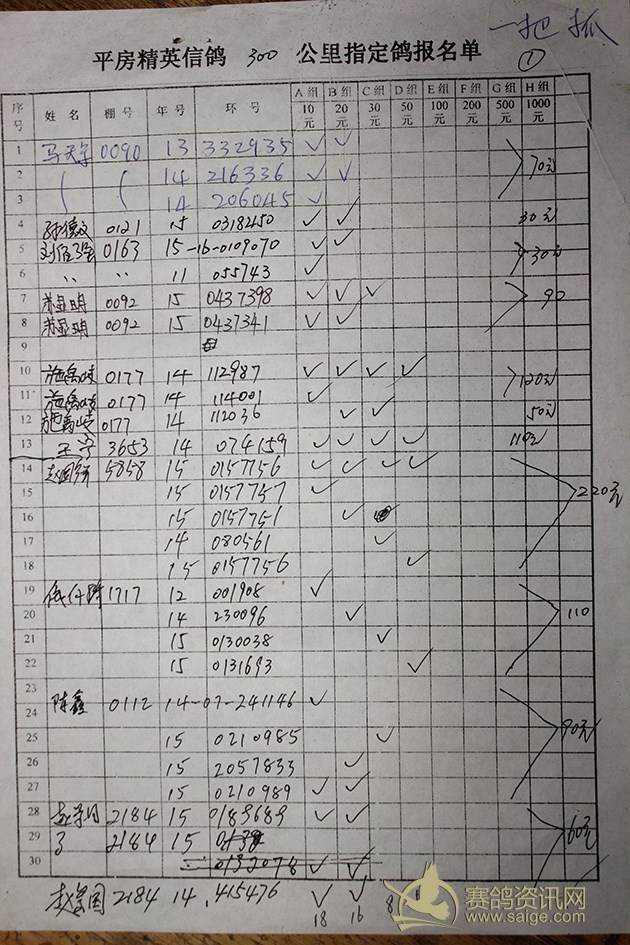 一把抓
①
平房精英信鸽 300 公里指定鸽报名单
序号 姓名 棚号 年号 环号 A组10元 B组20元 C组30元 D组50元 E组100元 F组200元 G组500元 H组1000元
1 马天宇 0090 13 332935 ✓ ✓
2 14 216336 ✓ ✓ 70元
3 14 206045 ✓
4 0121 15 0318250 ✓ ✓ 30元
5 0163 15-16-0109070 ✓ ✓
6 〃 〃 11 055743 ✓ 30元
7 萧显明 0092 15 0437398 ✓ ✓ ✓ 90
8 萧显明 0092 15 0437341 ✓ ✓
9
10 0177 14 112987 ✓ ✓ ✓ ✓ 120元
11 0177 14 114001 ✓
12 0177 14 112036 ✓ ✓ 50元
13 王宇 3653 14 074159 ✓ ✓ ✓ ✓ 110元
14 5858 15 0157756 ✓ ✓ ✓ ✓
15 15 0157757 ✓ 220元
16 15 0157751 ✓
17 14 080561 ✓
18 15 0157756 ✓
19 1717 12 001908 ✓
20 14 230096 ✓ 110
21 15 0130038 ✓
22 15 0131693 ✓
23
24 陈鑫 0112 14-07-241146 ✓
25 15 0210985 ✓ 90元
26 15 2057833 ✓
27 15 0210989 ✓ ✓
28 2184 15 0189689 ✓ ✓
29 2184 15 60元
30 0132078 ✓ ✓
2184 14.415476 ✓ ✓
18 16 8
赛鸽资讯网
www.saige.com